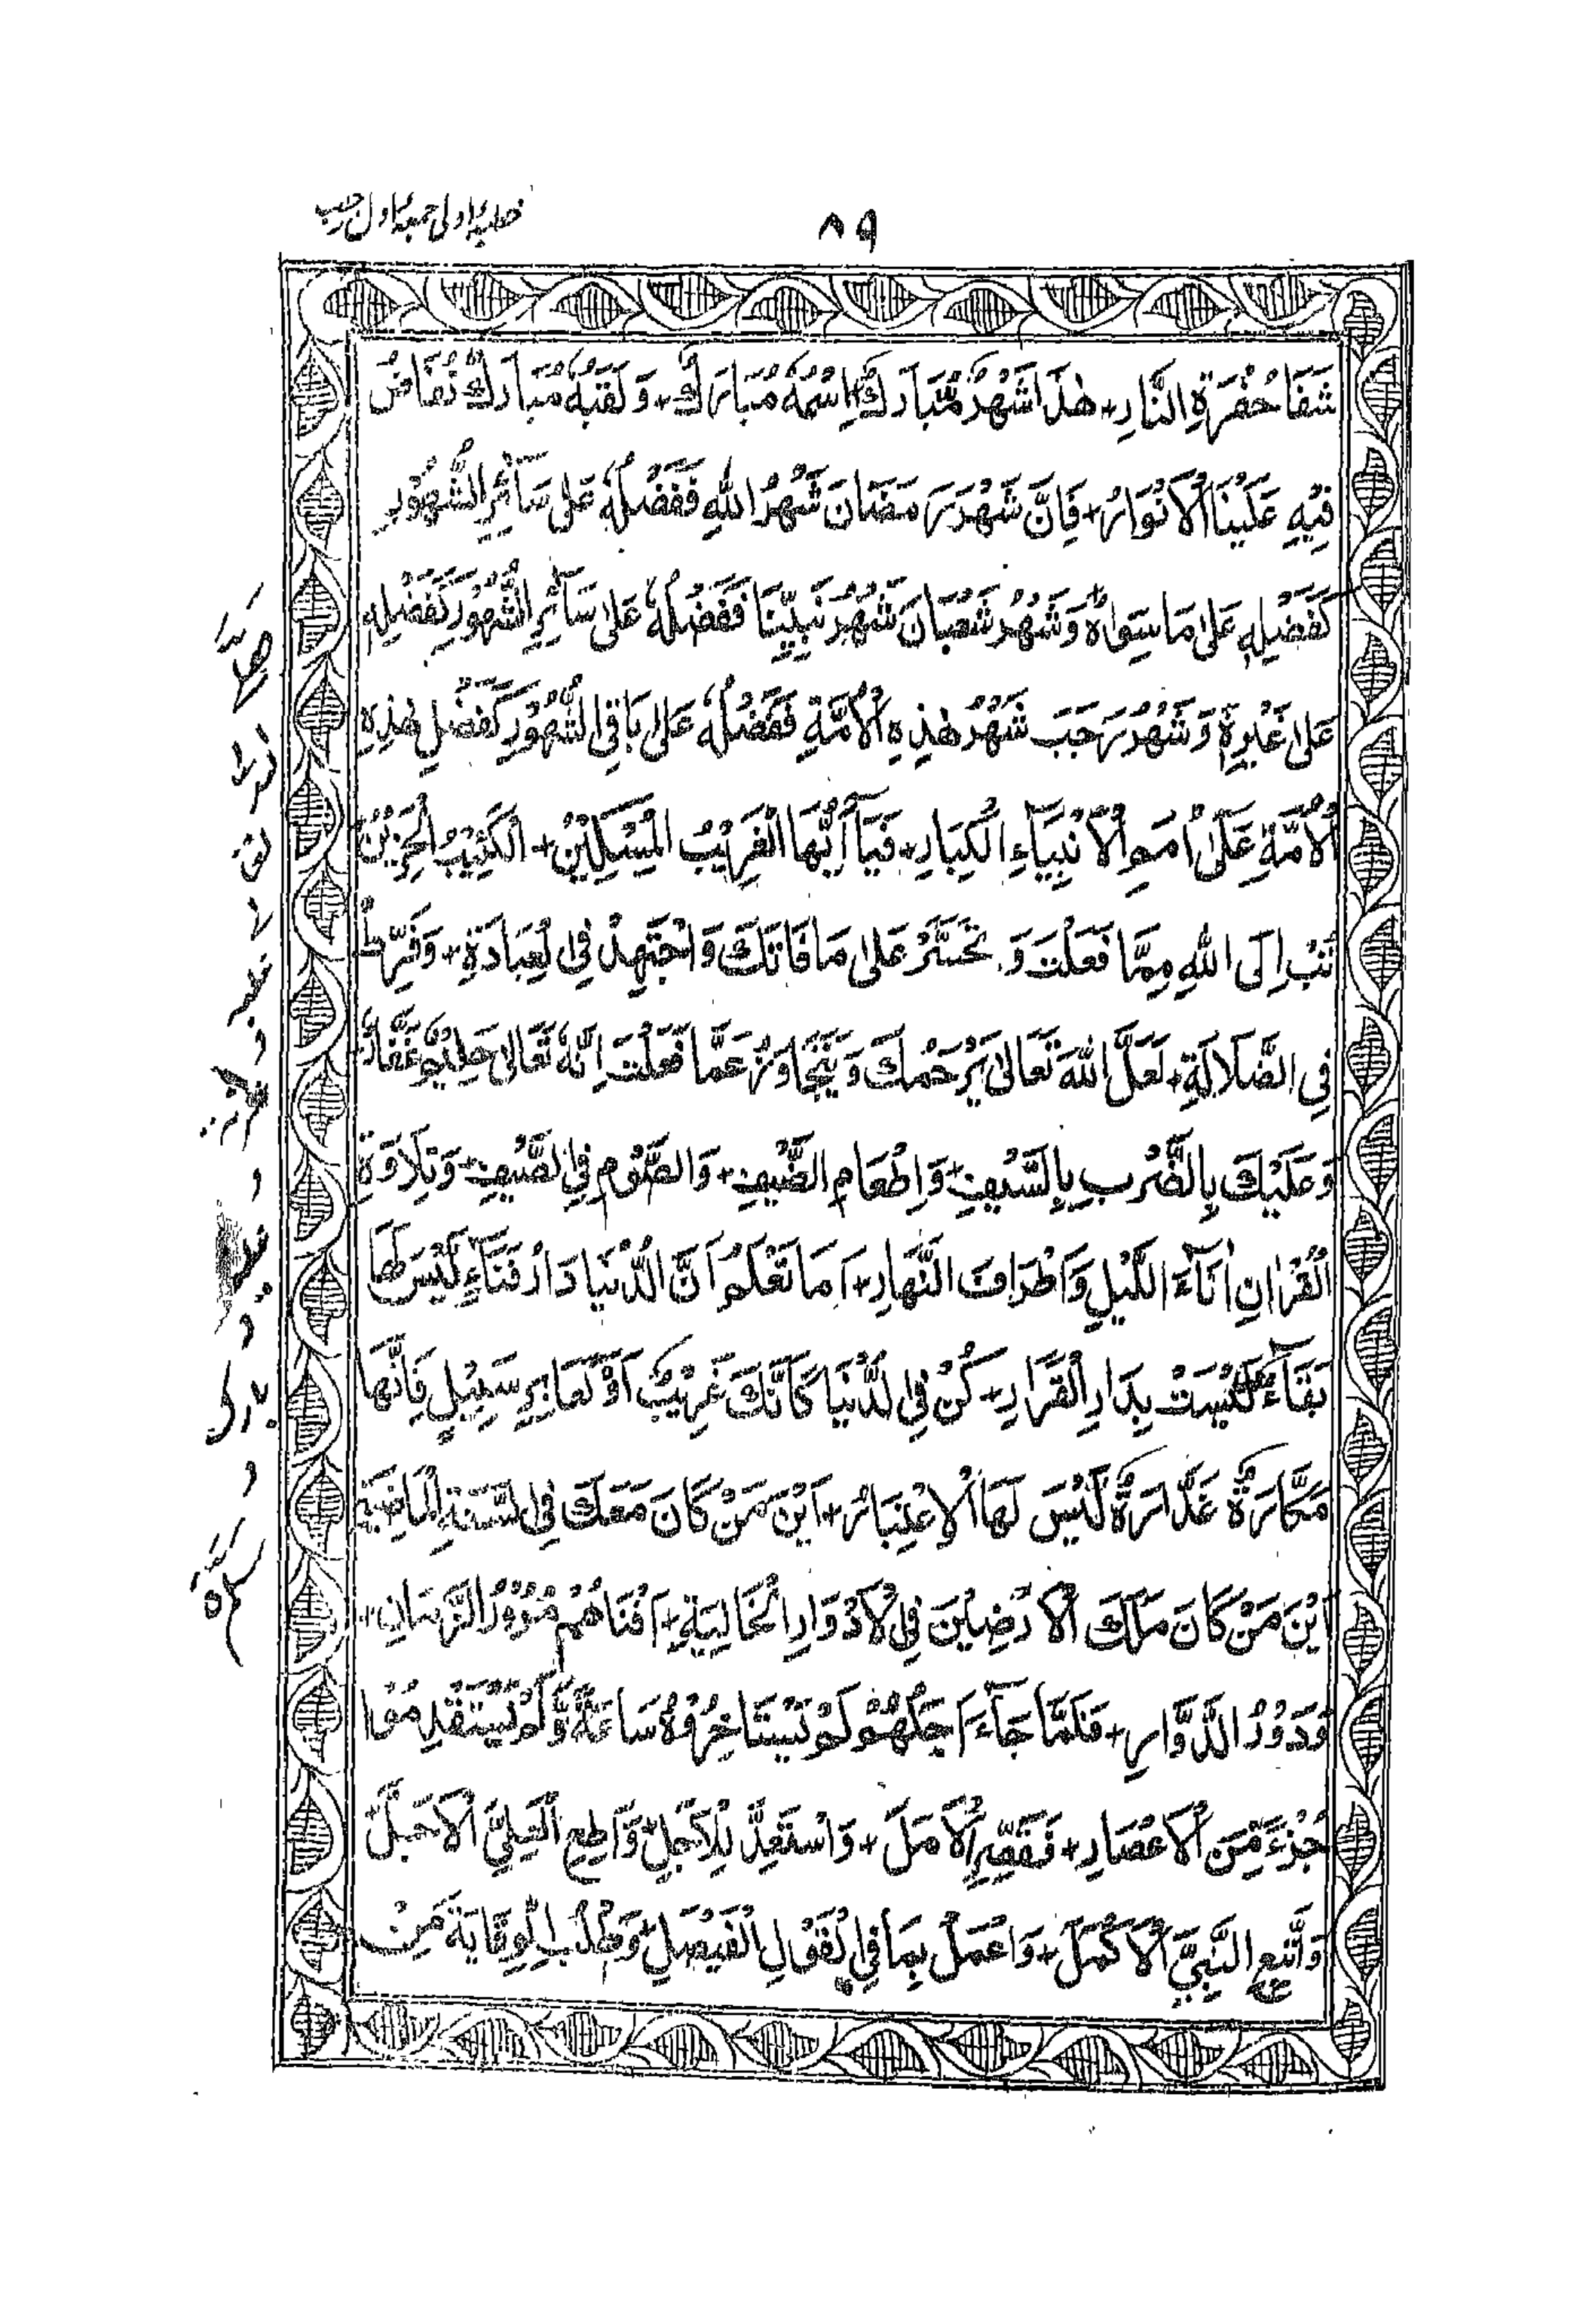 ٨٩
خطبۂ اولی جمعۂ اول رجب
شَفَا حُفْرَةِ النَّارِ+ هٰذَا شَهْرٌ مُّبَارَكٌ+ اِسْمُهٗ مُبَارَكٌ+ وَلَقَبُهٗ مُبَارَكٌ تُفَاضُ
فِيْهِ عَلَيْنَا الْاَنْوَارُ+ فَاِنَّ شَهْرَ رَمَضَانَ شَهْرُ اللهِ فَفَضْلُهٗ عَلٰى سَآئِرِ الشُّهُوْرِ
كَفَضْلِهٖ عَلٰى مَا سِوَاهُ وَشَهْرُ شَعْبَانَ شَهْرُ نَبِيِّنَا فَفَضْلُهٗ عَلٰى سَآئِرِ الشُّهُوْرِ كَفَضْلِهٖ
عَلٰى غَيْرِهٖ وَشَهْرُ رَجَبَ شَهْرُ هٰذِهِ الْاُمَّةِ فَفَضْلُهٗ عَلٰى بَاقِى الشُّهُوْرِ كَفَضْلِ هٰذِهِ
الْاُمَّةِ عَلٰى اُمَمِ الْاَنْبِيَآءِ الْكِبَارِ+ فَيَآ اَيُّهَا الْغَرِيْبُ الْمِسْكِيْنُ+ الْكَئِيْبُ الْحَزِيْنُ
تُبْ اِلَى اللهِ مِمَّا فَعَلْتَ وَتَحَسَّرْ عَلٰى مَا فَاتَكَ وَاجْتَهِدْ فِى الْعِبَادَةِ+ وَفَرِّطْ
فِى الضَّلَالَةِ+ لَعَلَّ اللهَ تَعَالٰى يَرْحَمُكَ وَيَتَجَاوَزُ عَمَّا فَعَلْتَ اِنَّهٗ تَعَالٰى حَلِيْمٌ غَفَّارٌ
وَعَلَيْكَ بِالضَّرْبِ بِالسَّيْفِ+ وَاِطْعَامِ الضَّيْفِ+ وَالصَّوْمِ فِى الصَّيْفِ+ وَتِلَاوَةِ
الْقُرْاٰنِ اٰنَآءَ اللَّيْلِ وَاَطْرَافَ النَّهَارِ+ اَمَا تَعْلَمُ اَنَّ الدُّنْيَا دَارُ فَنَآءٍ لَيْسَ لَهَا
بَقَآءٌ لَيْسَتْ بِدَارِ الْقَرَارِ+ كُنْ فِى الدُّنْيَا كَاَنَّكَ غَرِيْبٌ اَوْ كَعَابِرِ سَبِيْلٍ فَاِنَّهَا
مَكَّارَةٌ غَدَّارَةٌ لَيْسَ لَهَا الْاِعْتِبَارُ+ اَيْنَ مَنْ كَانَ مَعَكَ فِى السَّنَةِ الْمَاضِيَةِ
اَيْنَ مَنْ كَانَ مَلَكَ الْاَرْضِيْنَ فِى الْاَدْوَارِ الْخَالِيَةِ+ اَفْنَاهُمْ مُرُوْرُ الزَّمَانِ+
وَدَوْرُ الدَّوَّارِ+ فَلَمَّا جَآءَ اَجَلُهُمْ لَمْ يَسْتَاْخِرُوْهُ سَاعَةً وَّلَمْ يَسْتَقْدِمُوْا
جُزْءً مِّنَ الْاَعْصَارِ+ فَقَصِّرِ الْاَمَلَ+ وَاسْتَعِدَّ لِلْاَجَلِ وَاَطِعِ الْعَلِىَّ الْاَجَلَّ
وَاتَّبِعِ النَّبِىَّ الْاَكْمَلَ+ وَاعْمَلْ بِمَا فِى الْقَوْلِ الْفَيْصَلِ وَاطْلُبِ الْوِقَايَةَ مِنْ